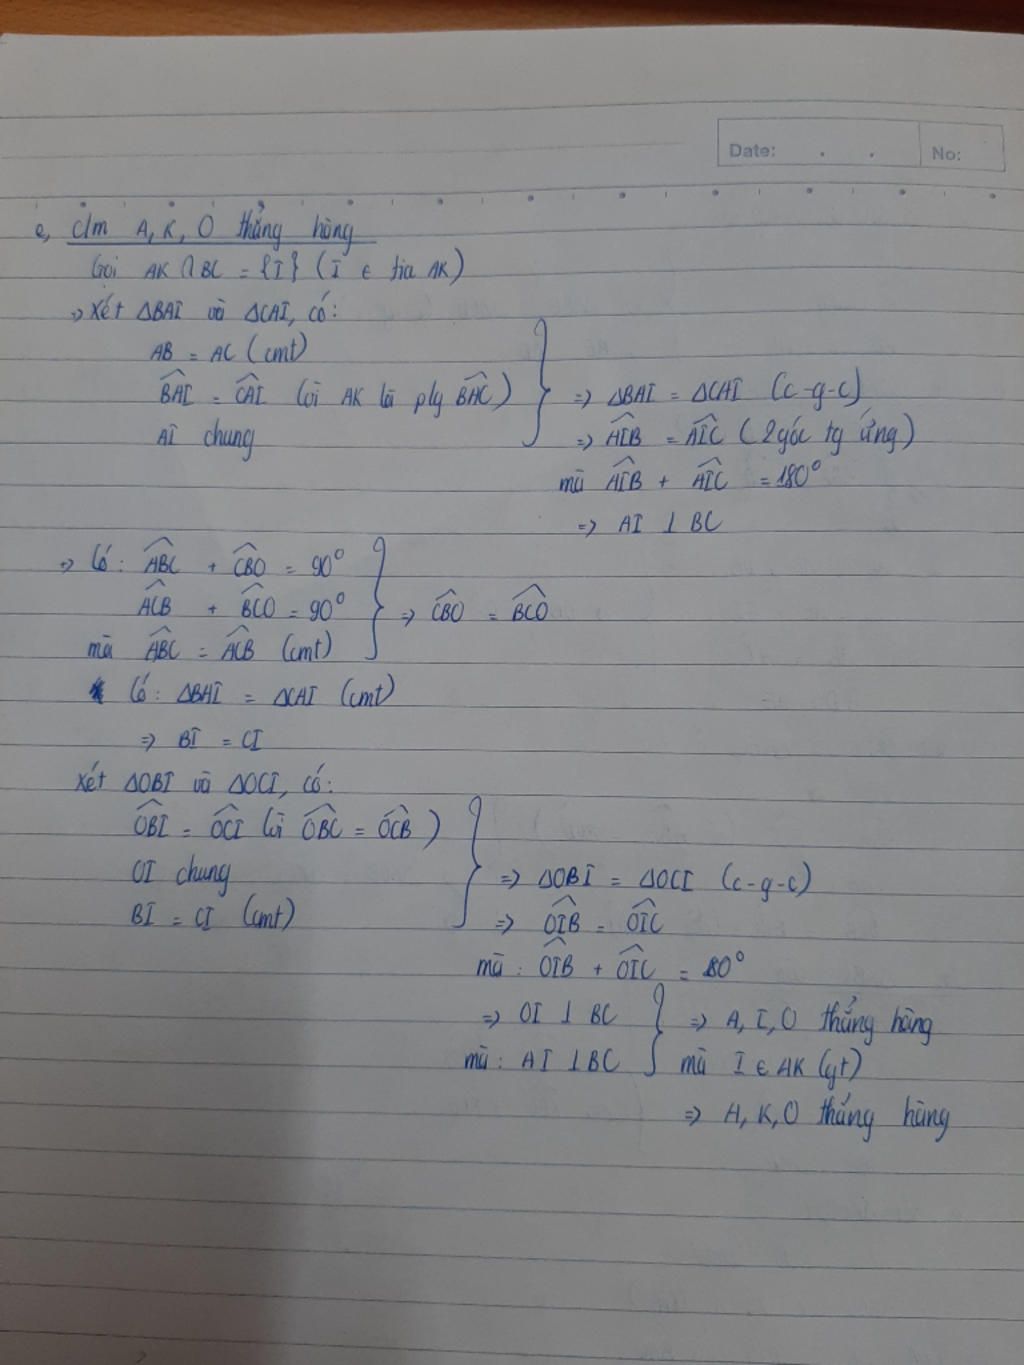 Date: . . No:
e, c/m A, K, O thẳng hàng
Gọi AK ∩ BC = {I} (I ∈ tia AK)
=> Xét ΔBAI và ΔCAI, có:
AB = AC (cmt)
BAI = CAI (vì AK là p/g BAC) => ΔBAI = ΔCAI (c-g-c)
AI chung => AIB = AIC (2 góc tg ứng)
mà AIB + AIC = 180°
=> AI ⊥ BC
=> Có: ABC + CBO = 90°
ACB + BCO = 90° => CBO = BCO
mà ABC = ACB (cmt)
Có: ΔBAI = ΔCAI (cmt)
=> BI = CI
Xét ΔOBI và ΔOCI, có:
OBI = OCI (vì OBC = OCB)
OI chung => ΔOBI = ΔOCI (c-g-c)
BI = CI (cmt) => OIB = OIC
mà: OIB + OIC = 180°
=> OI ⊥ BC => A, I, O thẳng hàng
mà: AI ⊥ BC mà I ∈ AK (gt)
=> A, K, O thẳng hàng